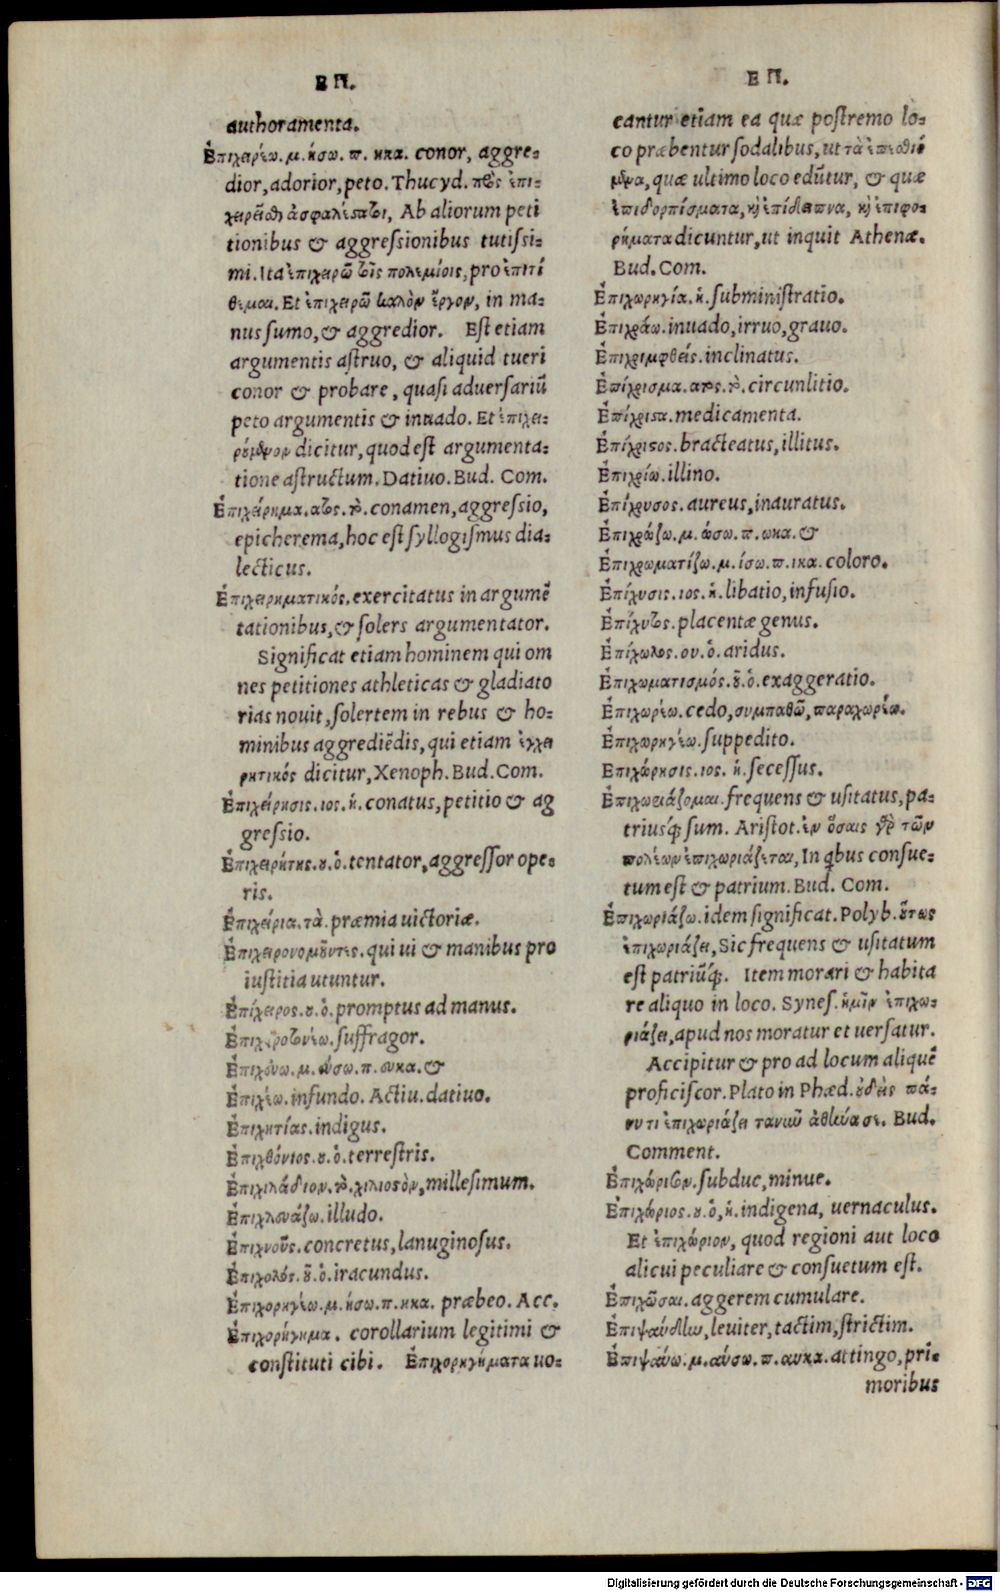 ΕΠ.
authoramenta.
Ἐπιχειρέω. μ. ήσω. π. ηκα. conor, aggre=
dior, adorior, peto. Thucyd. πρὸς ἐπι=
χειρεῖσθαι ἀσφαλέστατοι, Ab aliorum peti
tionibus & aggreſsionibus tutiſsi=
mi. Ita ἐπιχειρῶ τοῖς πολεμίοις, pro ἐπιτί
θεμαι. Et ἐπιχειρῶ καλὸν ἔργον, in ma=
nus ſumo, & aggredior. Eſt etiam
argumentis aſtruo, & aliquid tueri
conor & probare, quaſi aduerſariū
peto argumentis & inuado. Et ἐπιχει=
ρούμενον dicitur, quod eſt argumenta=
tione aſtructum. Datiuo. Bud. Com.
Ἐπιχείρημα. ατος. τὸ. conamen, aggreſsio,
epicherema, hoc eſt ſyllogiſmus dia=
lecticus.
Ἐπιχειρηματικός. exercitatus in argumē
tationibus, & ſolers argumentator.
Significat etiam hominem qui om
nes petitiones athleticas & gladiato
rias nouit, ſolertem in rebus & ho=
minibus aggrediēdis, qui etiam ἐγχει
ρητικός dicitur, Xenoph. Bud. Com.
Ἐπιχείρησις. ιος. ἡ. conatus, petitio & ag
greſsio.
Ἐπιχειρητής. οῦ. ὁ. tentator, aggreſſor ope=
ris.
Ἐπιχείρια. τὰ. præmia uictoriæ.
Ἐπιχειρονομοῦντες. qui ui & manibus pro
iuſtitia utuntur.
Ἐπίχειρος. ου. ὁ. promptus ad manus.
Ἐπιχειροτονέω. ſuffragor.
Ἐπιχεύω. μ. εύσω. π. ευκα. &
Ἐπιχέω. infundo. Actiu. datiuo.
Ἐπιχητίας. indigus.
Ἐπιχθόνιος. ου. ὁ. terreſtris.
Ἐπιχιλάδιον. τὸ. χιλιοστὸν, milleſimum.
Ἐπιχλευάζω. illudo.
Ἐπιχνοῦς. concretus, lanuginoſus.
Ἐπιχολός. οῦ. ὁ. iracundus.
Ἐπιχορηγέω. μ. ήσω. π. ηκα. præbeo. Acc.
Ἐπιχορήγημα. corollarium legitimi &
conſtituti cibi. Ἐπιχορηγήματα uo=
ΕΠ.
cantur etiam ea quæ poſtremo lo=
co præbentur ſodalibus, ut τὰ ἐπεσθιό
μενα, quæ ultimo loco edūtur, & quæ
ἐπιδορπίσματα, καὶ ἐπίδειπνα, καὶ ἐπιφο=
ρήματα dicuntur, ut inquit Athenæ.
Bud. Com.
Ἐπιχωρηγία. ἡ. ſubminiſtratio.
Ἐπιχράω. inuado, irruo, grauo.
Ἐπιχριμφθείς. inclinatus.
Ἐπίχρισμα. ατος. τὸ. circunlitio.
Ἐπίχριστα. medicamenta.
Ἐπίχριστος. bracteatus, illitus.
Ἐπιχρίω. illino.
Ἐπίχρυσος. aureus, inauratus.
Ἐπιχρώζω. μ. ώσω. π. ωκα. &
Ἐπιχρωματίζω. μ. ίσω. π. ικα. coloro.
Ἐπίχυσις. ιος. ἡ. libatio, infuſio.
Ἐπίχυτος. placentæ genus.
Ἐπίχωλος. ου. ὁ. aridus.
Ἐπιχωματισμός. οῦ. ὁ. exaggeratio.
Ἐπιχωρέω. cedo, συμπαθῶ, παραχωρέω.
Ἐπιχωρηγέω. ſuppedito.
Ἐπιχώρησις. ιος. ἡ. ſeceſſus.
Ἐπιχωριάζομαι. frequens & uſitatus, pa=
triusq; ſum. Ariſtot. ἐν ὅσαις γὰρ τῶν
πολέων ἐπιχωριάζεται, In qbus conſue=
tum eſt & patrium. Bud. Com.
Ἐπιχωριάζω. idem ſignificat. Polyb. οὕτως
ἐπιχωριάζει, Sic frequens & uſitatum
eſt patriūq;. Item morari & habita
re aliquo in loco. Syneſ. ἡμῖν ἐπιχω=
ριάζει, apud nos moratur et uerſatur.
Accipitur & pro ad locum aliquē
proficiſcor. Plato in Phæd. οὐδεὶς πά=
νυ τι ἐπιχωριάζει τανῦν ἀθήναζε. Bud.
Comment.
Ἐπιχώρισον. ſubduc, minue.
Ἐπιχώριος. ου. ὁ, ἡ. indigena, uernaculus.
Et ἐπιχώριον, quod regioni aut loco
alicui peculiare & conſuetum eſt.
Ἐπιχῶσαι. aggerem cumulare.
Ἐπιψαύδην, leuiter, tactim, ſtrictim.
Ἐπιψαύω. μ. αύσω. π. αυκα. attingo, pri=
moribus
Digitalisierung gefördert durch die Deutsche Forschungsgemeinschaft - DFG